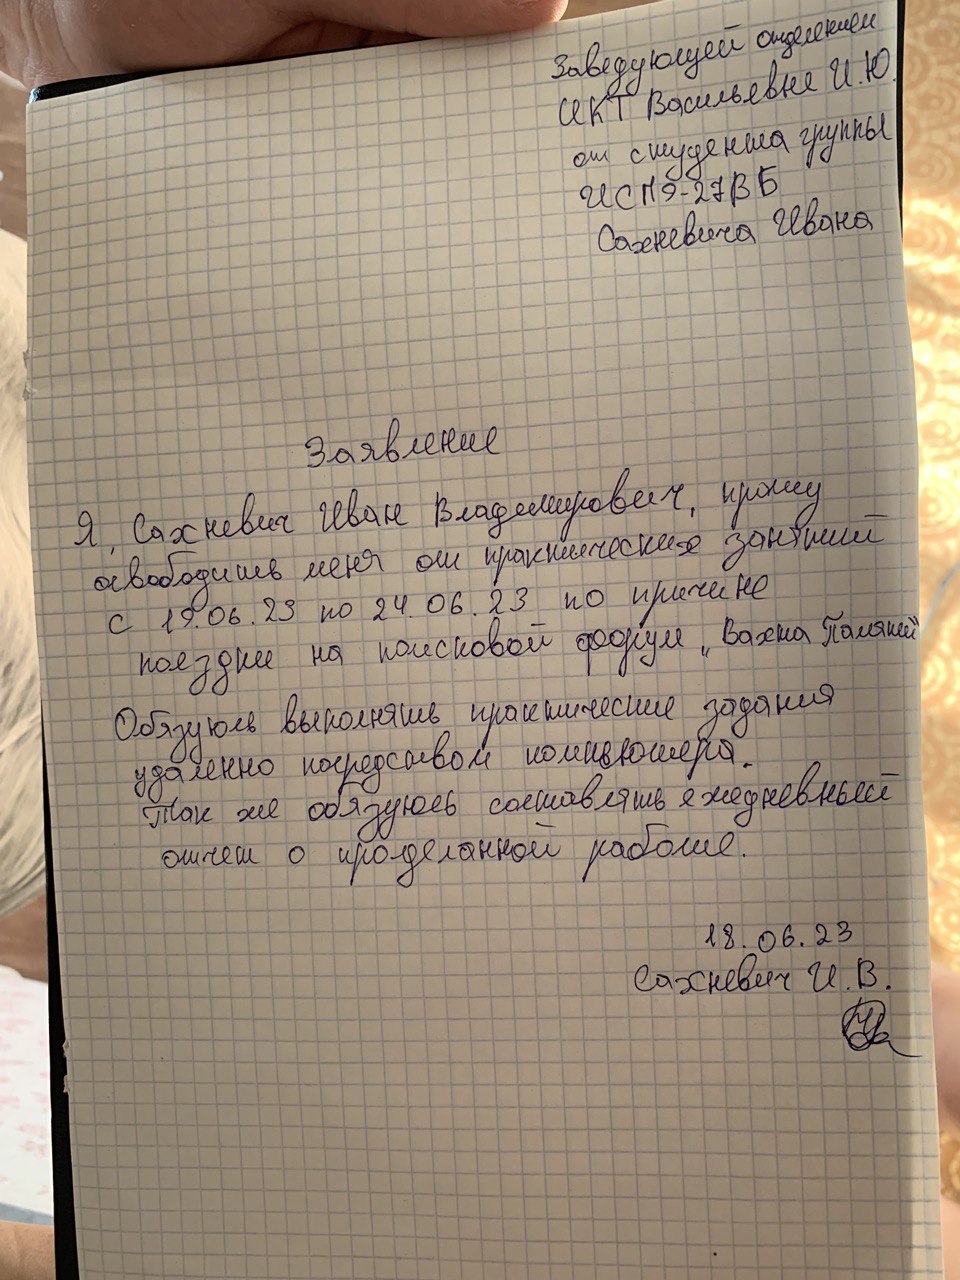 Заведующей отделением
ИКТ Васильевне И.Ю.
от студента группы
ИСП9-27ВБ
Сахневича Ивана
Заявление
Я, Сахневич Иван Владимирович, прошу
освободить меня от практических занятий
с 19.06.23 по 24.06.23 по причине
поездки на поисковой форум „Вахта Памяти"
Обязуюсь выполнять практические задания
удаленно посредством компьютера.
Так же обязуюсь составлять ежедневный
отчет о проделанной работе.
18.06.23
Сахневич И.В.